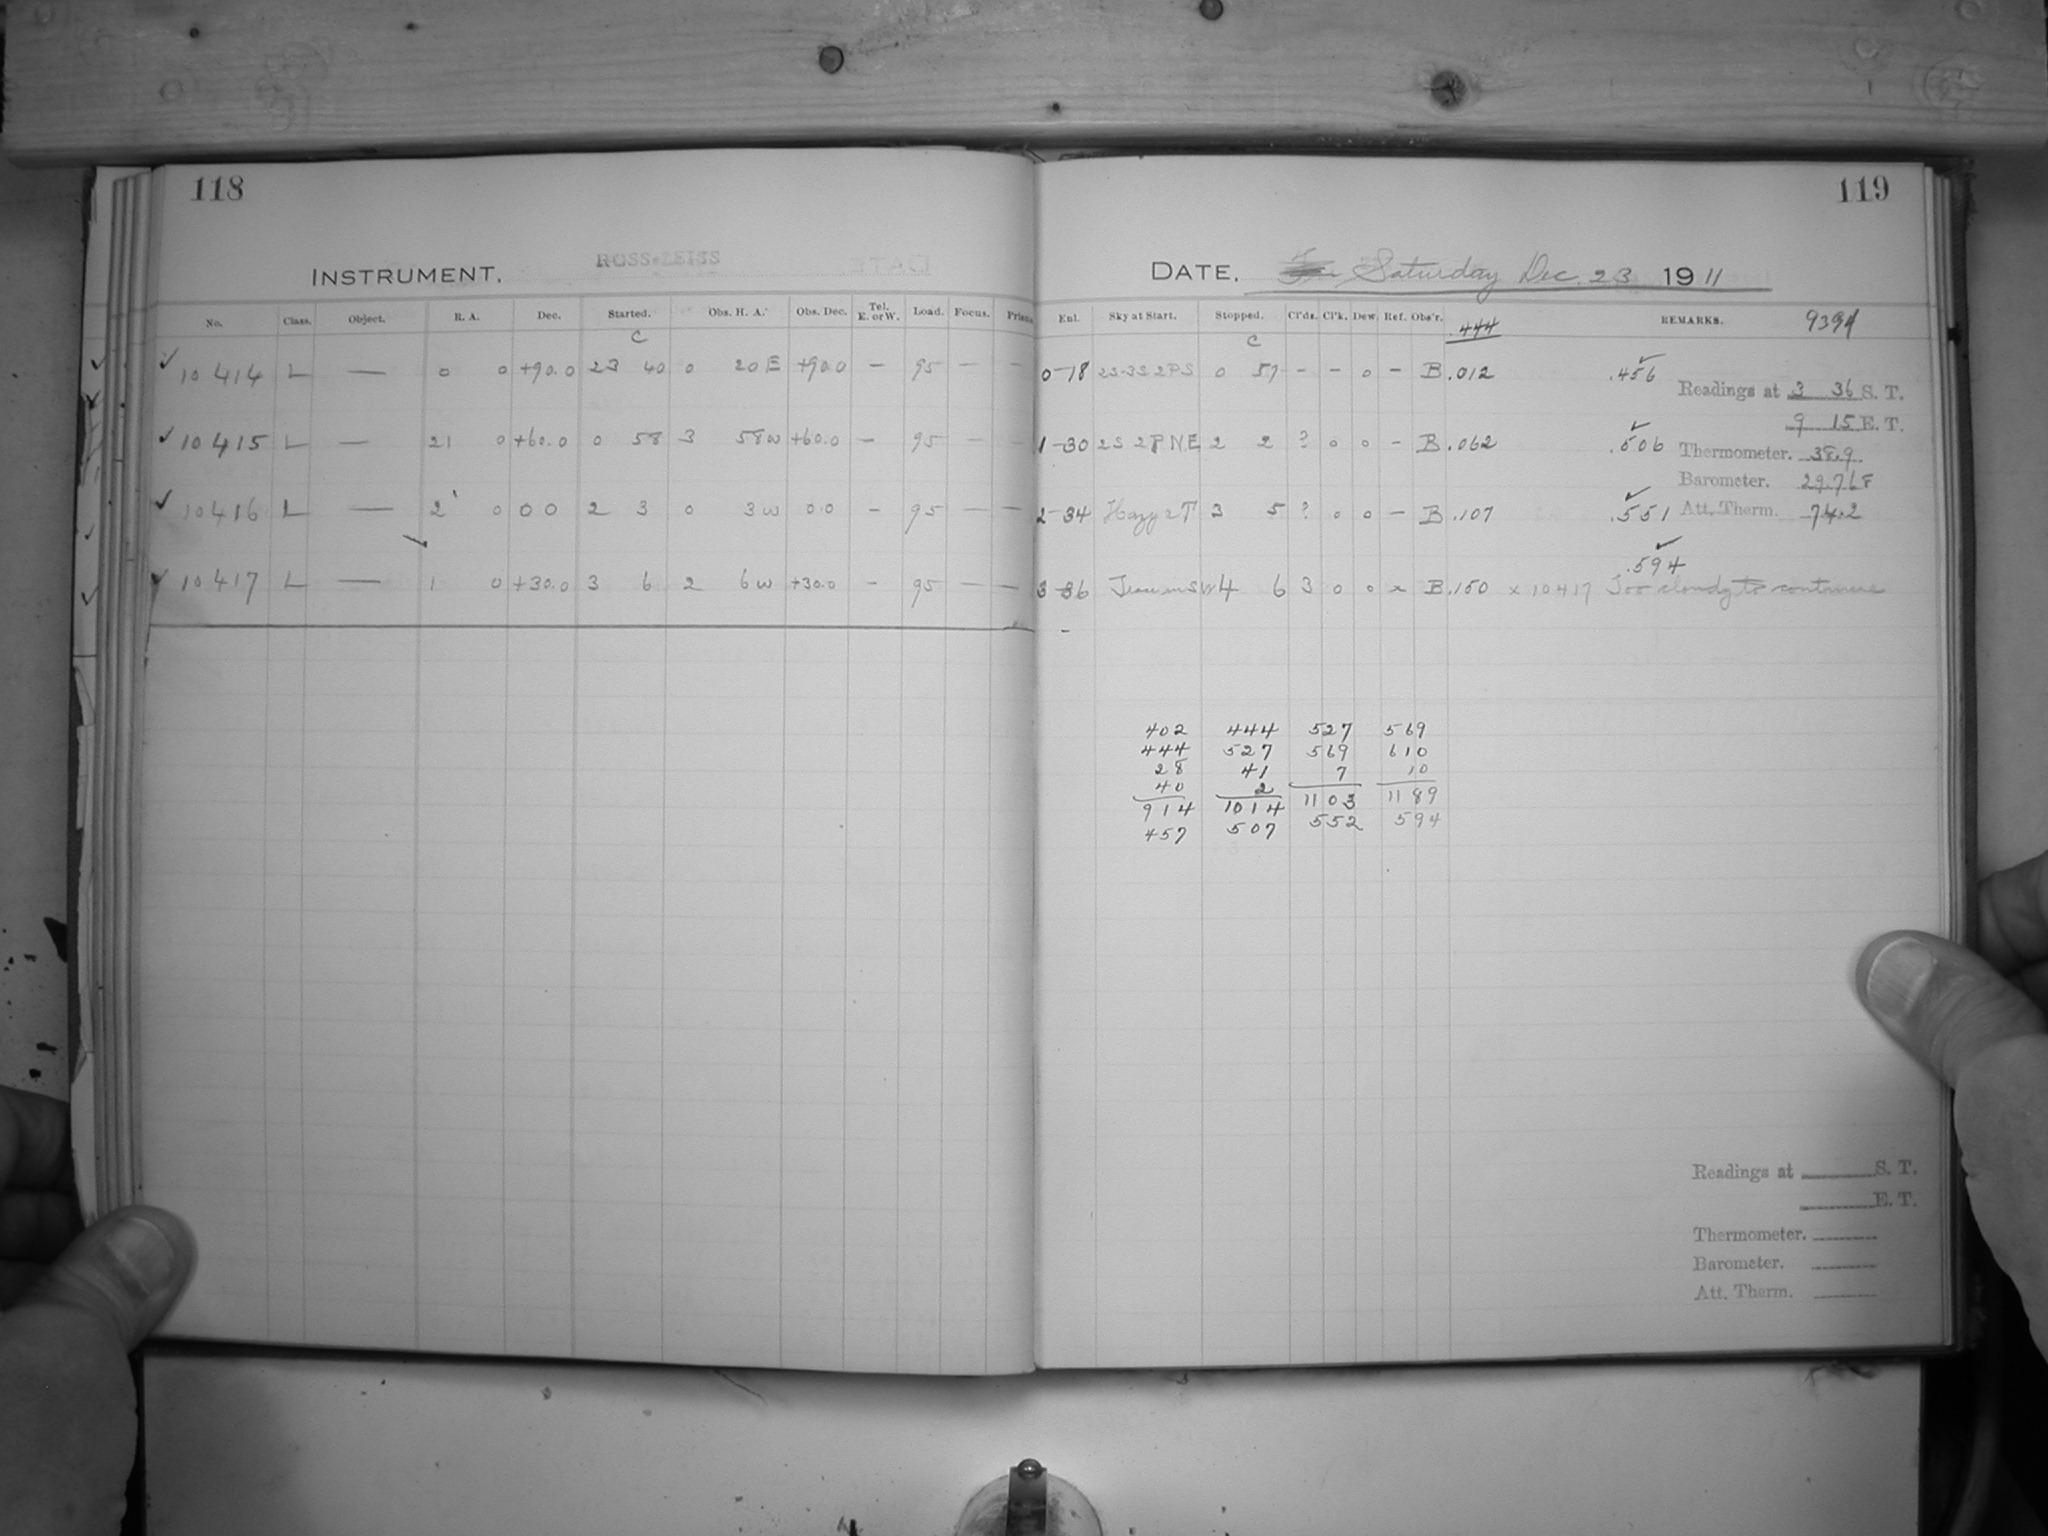 118
INSTRUMENT. ROSS-ZEISS
No. Class. Object. R. A. Dec. Started. Obs. H. A. Obs. Dec. Tel. E. or W. Load. Focus. Prism
C
10414 L — 0 0 +90.0 23 40 0 20 E +90.0 — 95 — —
10415 L — 21 0 +60.0 0 58 3 58 w +60.0 — 95 — —
10416 L — 2 0 0 0 2 3 0 3 w 0.0 — 95 — —
10417 L — 1 0 +30.0 3 6 2 6 w +30.0 — 95 — —
119
DATE. Saturday Dec. 23 1911
Enl. Sky at Start. Stopped. Cl'ds. Cl'k. Dew. Ref. Obs'r. .444 REMARKS. 9394
C
0-18 2S-3S 2PS 0 57 — — 0 — B .012 .456
Readings at 3 36 S. T.
9 15 E. T.
1-30 2S 2P NE 2 2 ? 0 0 — B .062 .506
Thermometer. 38.9
Barometer. 29.76
2-34 Hazy 2T 3 5 ? 0 0 — B .107 .551
Att. Therm. 74.2
.594
3-36 in SW 4 6 3 0 0 x B .150 x 10417 Too cloudy to continue
402 444 527 569
444 527 569 610
28 41 7 10
40 2
914 1014 1103 1189
457 507 552 594
Readings at S. T.
E. T.
Thermometer.
Barometer.
Att. Therm.